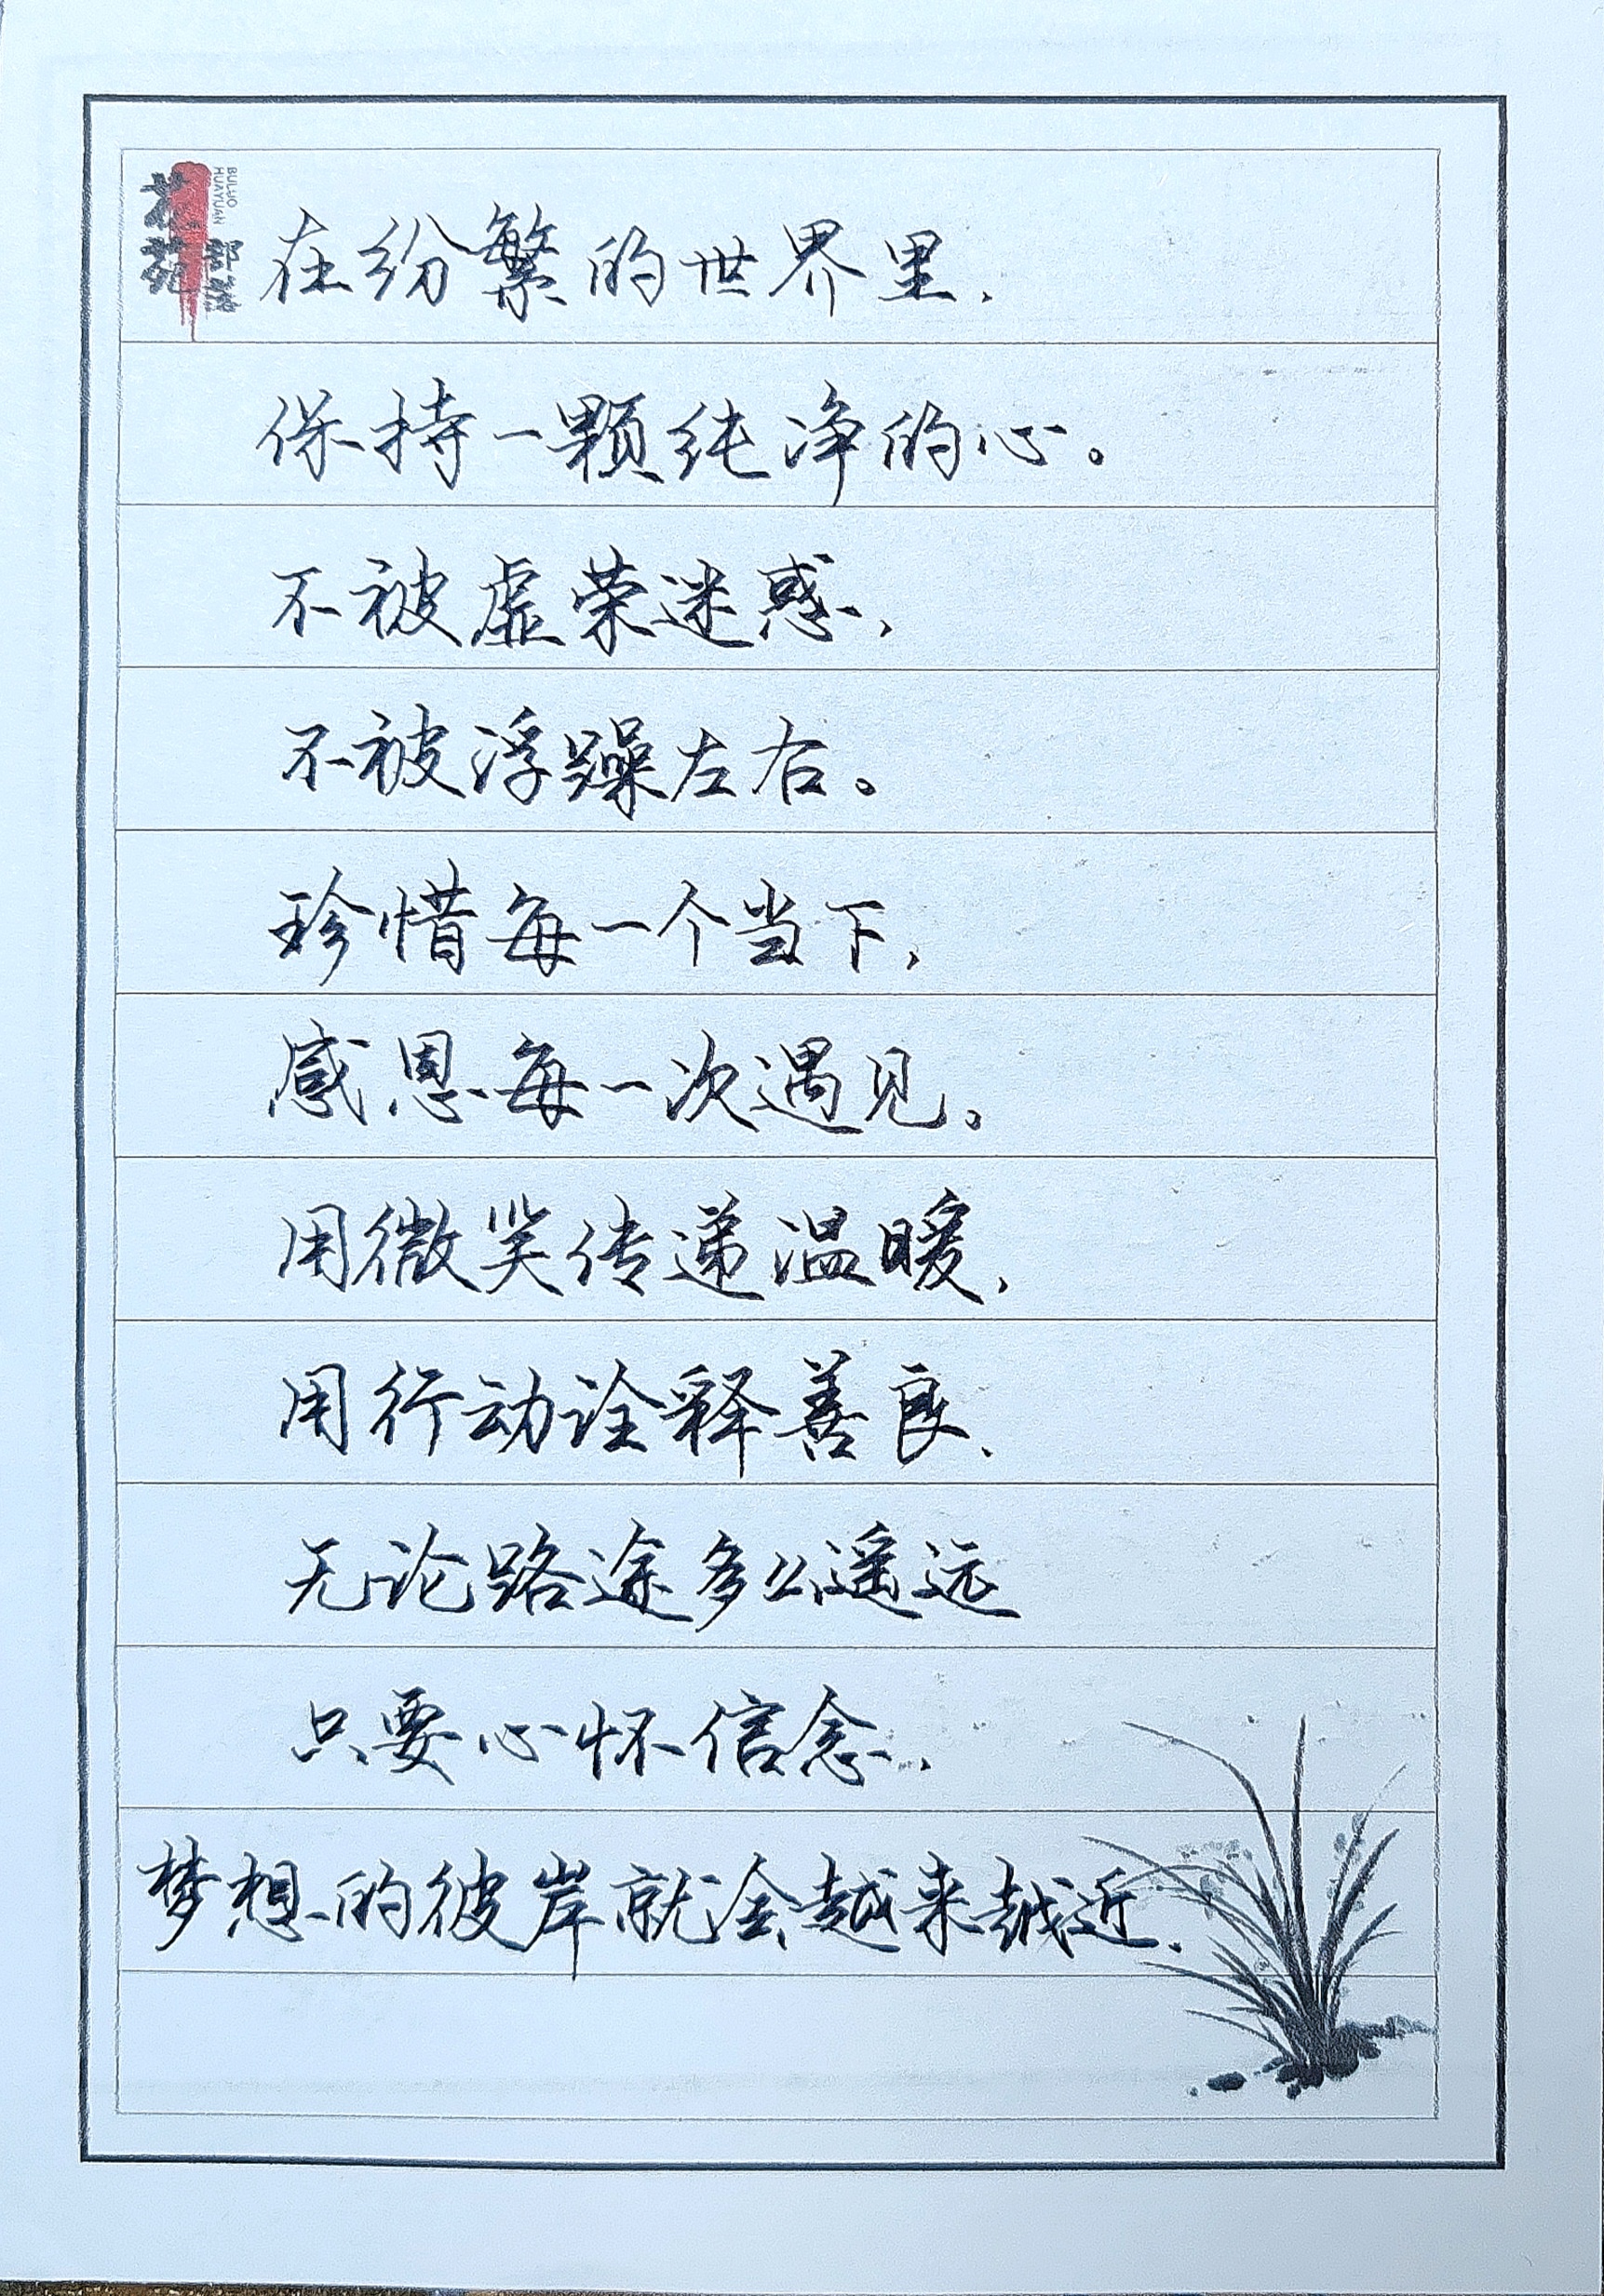 花苑
部落
BULUO
HUAYUAN
在纷繁的世界里,
保持一颗纯净的心。
不被虚荣迷惑,
不被浮躁左右。
珍惜每一个当下,
感恩每一次遇见。
用微笑传递温暖,
用行动诠释善良,
无论路途多么遥远
只要心怀信念,
梦想的彼岸就会越来越近.